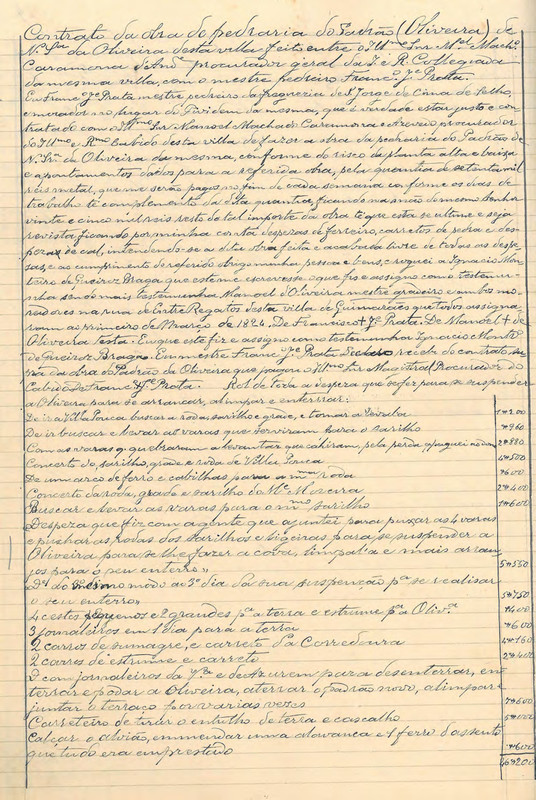 Contrato da obra de pedraria do Padrão (Oliveira) de
N. Sra da Oliveira desta villa feito entre o Illmo Snr Mel Machdo
Caramona d'And procurador geral da I. e R. Collegiada
da mesma villa, com o mestre pedreiro Francco Je Prata.
Eu Francco Je Prata mestre pedreiro da freguezia de S. Jorge de Cima de Selho,
e morador no lugar da da mesma, que é verdade estar justo e con-
tratado com o Illmo Snr Manoel Machado Caramona e procurador
do Illmo e Rmo Cabido desta villa de fazer a obra da pedraria do Padrão de
N. Sra da Oliveira da mesma, conforme do risco da planta alta e baixa
e apontamentos dados para a referida obra, pela quantia de setenta mil
réis metal, que me serão pagos no fim de cada semana conforme os dias de
trabalho té complemento da dita quantia, ficando na mão do mesmo senhor
vinte e cinco mil reis resto do tal importe da obra té que esta se ultime e seja
revista ficando por minha conta despezas de ferreiro, carretos de pedra e des-
pezas de cal, intendendo-se a dita obra feita e acabada livre de todas as despe-
sas, e ao cumprimento do referido obrigo minha pessoa e bens, e roguei a Ignacio Mon-
teiro de Queiroz Braga que este me escrevesse o que fis e assigno como testemu-
nha sendo mais testemunha Manoel d'Oliveira mestre e ambos mo-
radores na rua de Entre Regatos desta villa de Guimarães que todos assigna-
ram ao primeiro de Março de 1824. De Francisco + Je Prata. De Manoel + de
Oliveira Testa. Eu que este fiz e assigno como testemunha Ignacio Montro
de Queiroz Braga. Eu mestre Francco Je Prata recebi do contrato
da obra do Padrão da Oliveira que pagou o Illmo Snr Procurador do
Cabido. De Francco Je Prata. Rol de toda a despeza que se fez para se suspender
a Oliveira para se arrancar, alimpar e enterrar:
De ir a Villa Pouca buscar a roda sarilho e grade, e tornar a leval-a 1$200
De ir buscar e levar as varas que serviram para o sarilho $960
Com as varas q. quebraram a levantar que cahiram, pela perda q. paguei 2$880
Concerto do sarilho, grade e roda de Villa Pouca $500
De um arco de ferro e cavilhas para a mma roda $600
Concerto da roda, grade e sarilho do Mel Moreira 2$400
Buscar e levar as varas para o mmo sarilho 1$600
Despeza que fiz com a gente que ajuntei para puxar as 4 varas
e puxar as rodas dos sarilhos e ligeiras para se suspender a
Oliveira para se lhe fazer a cova, limpal-a e mais arran-
jos para o seu enterro» 5$550
Da do mesmo modo ao 3º dia da sua suspenção pa se realisar
o seu enterro» 5$750
4 cestos pequenos e 2 grandes pa a terra e estrume pa a Olivra $400
3 jornaleiros em 1 dia para a terra $600
2 carros de sumagre, e carreto da Corredoura
2 carros de estrume e carreto 2$400
D com jornaleiros da Va e de fizerem para desenterrar, en-
terrar e podar a Oliveira, aterrar o padrão novo, alimpar e
juntar o terraço por varias vezes 7$600
Carreteiro de tirar o entulho de terra e cascalho 5$000
Calçar o alvião, emmendar uma alavanca e 1 ferro d'assento
que tudo era emprestado $600